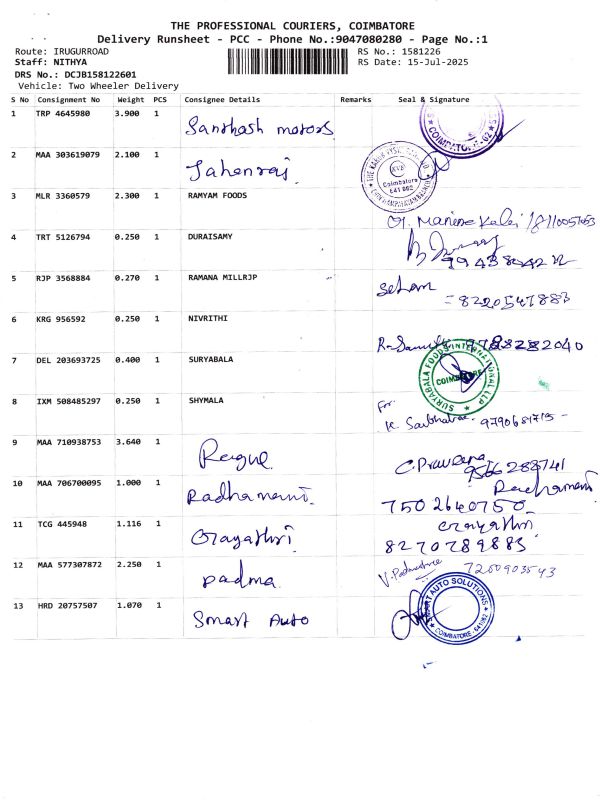 THE PROFESSIONAL COURIERS, COIMBATORE
Delivery Runsheet - PCC - Phone No.:9047080280 - Page No.:1
Route: IRUGURROAD
RS No.: 1581226
Staff: NITHYA
RS Date: 15-Jul-2025
DRS No.: DCJB158122601
Vehicle: Two Wheeler Delivery
S No Consignment No Weight PCS Consignee Details Remarks Seal & Signature
1 TRP 4645980 3.900 1 Santhash motors
COIMBATORE-62
2 MAA 303619079 2.100 1 Jahenraj
Coimbatore
641 062
3 MLR 3360579 2.300 1 RAMYAM FOODS
4 TRT 5126794 0.250 1 DURAISAMY
5 RJP 3568884 0.270 1 RAMANA MILLRJP
= 8220547883
6 KRG 956592 0.250 1 NIVRITHI
9788282040
7 DEL 203693725 0.400 1 SURYABALA
SURYABALA FOODS INTERNATIONAL LLP
COIMBATORE
8 IXM 508485297 0.250 1 SHYMALA
For
9 MAA 710938753 3.640 1
C. Praveena
9566288741
10 MAA 706700095 1.000 1 Radhamani.
Radhamani
7502640750
11 TCG 445948 1.116 1 Gayathri
Gayathri
8270789883
12 MAA 577307872 2.250 1 padma
V. Padmashree
13 HRD 20757507 1.070 1 Smart Auto
SMART AUTO SOLUTIONS
COIMBATORE - 641062